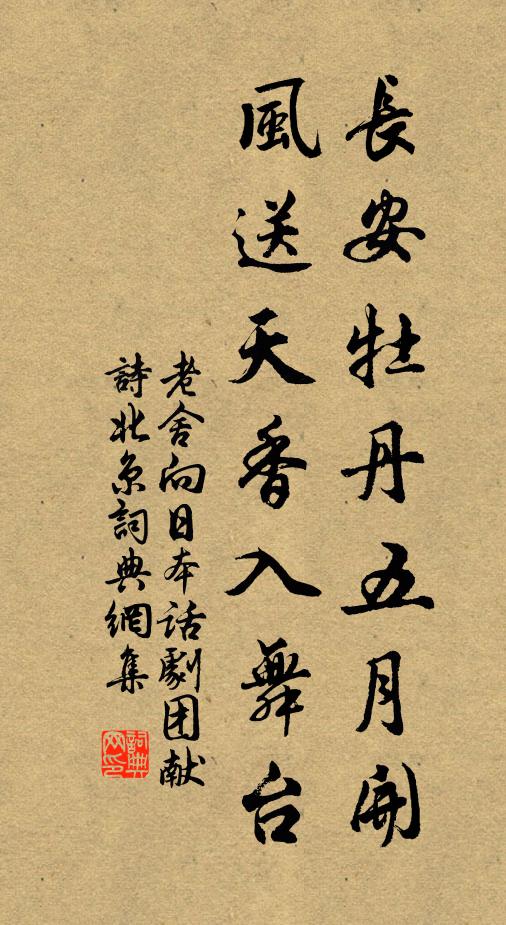 長安牡丹五月開
風送天香入舞台
老舍向日本话劇团献
詩北京詞典網集
詞典
网印